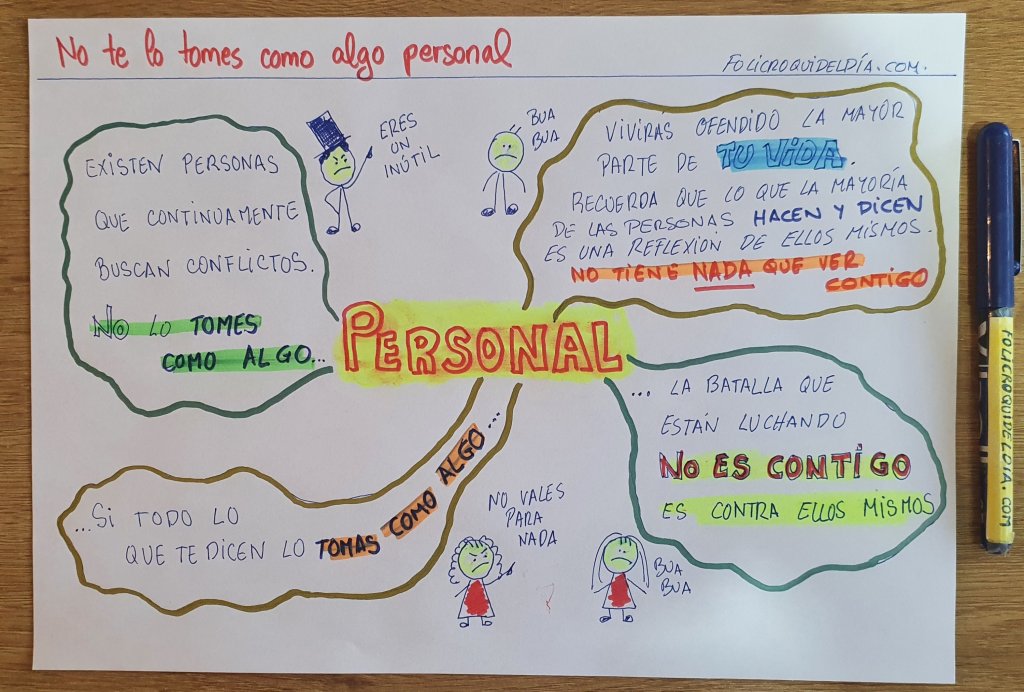 No te lo tomes como algo personal
FOLICROQUIDELDÍA.COM.
EXISTEN PERSONAS
QUE CONTINUAMENTE
BUSCAN CONFLICTOS.
NO LO TOMES
COMO ALGO...
ERES
UN
INÚTIL
BUA
BUA
VIVIRÁS OFENDIDO LA MAYOR
PARTE DE TU VIDA.
RECUERDA QUE LO QUE LA MAYORÍA
DE LAS PERSONAS HACEN Y DICEN
ES UNA REFLEXION DE ELLOS MISMOS.
NO TIENE NADA QUE VER
CONTIGO
PERSONAL
... LA BATALLA QUE
ESTÁN LUCHANDO
NO ES CONTIGO
ES CONTRA ELLOS MISMOS
...SI TODO LO
QUE TE DICEN LO TOMAS COMO ALGO...
NO VALES
PARA
NADA
BUA
BUA
FOLICROQUIDELDIA.COM